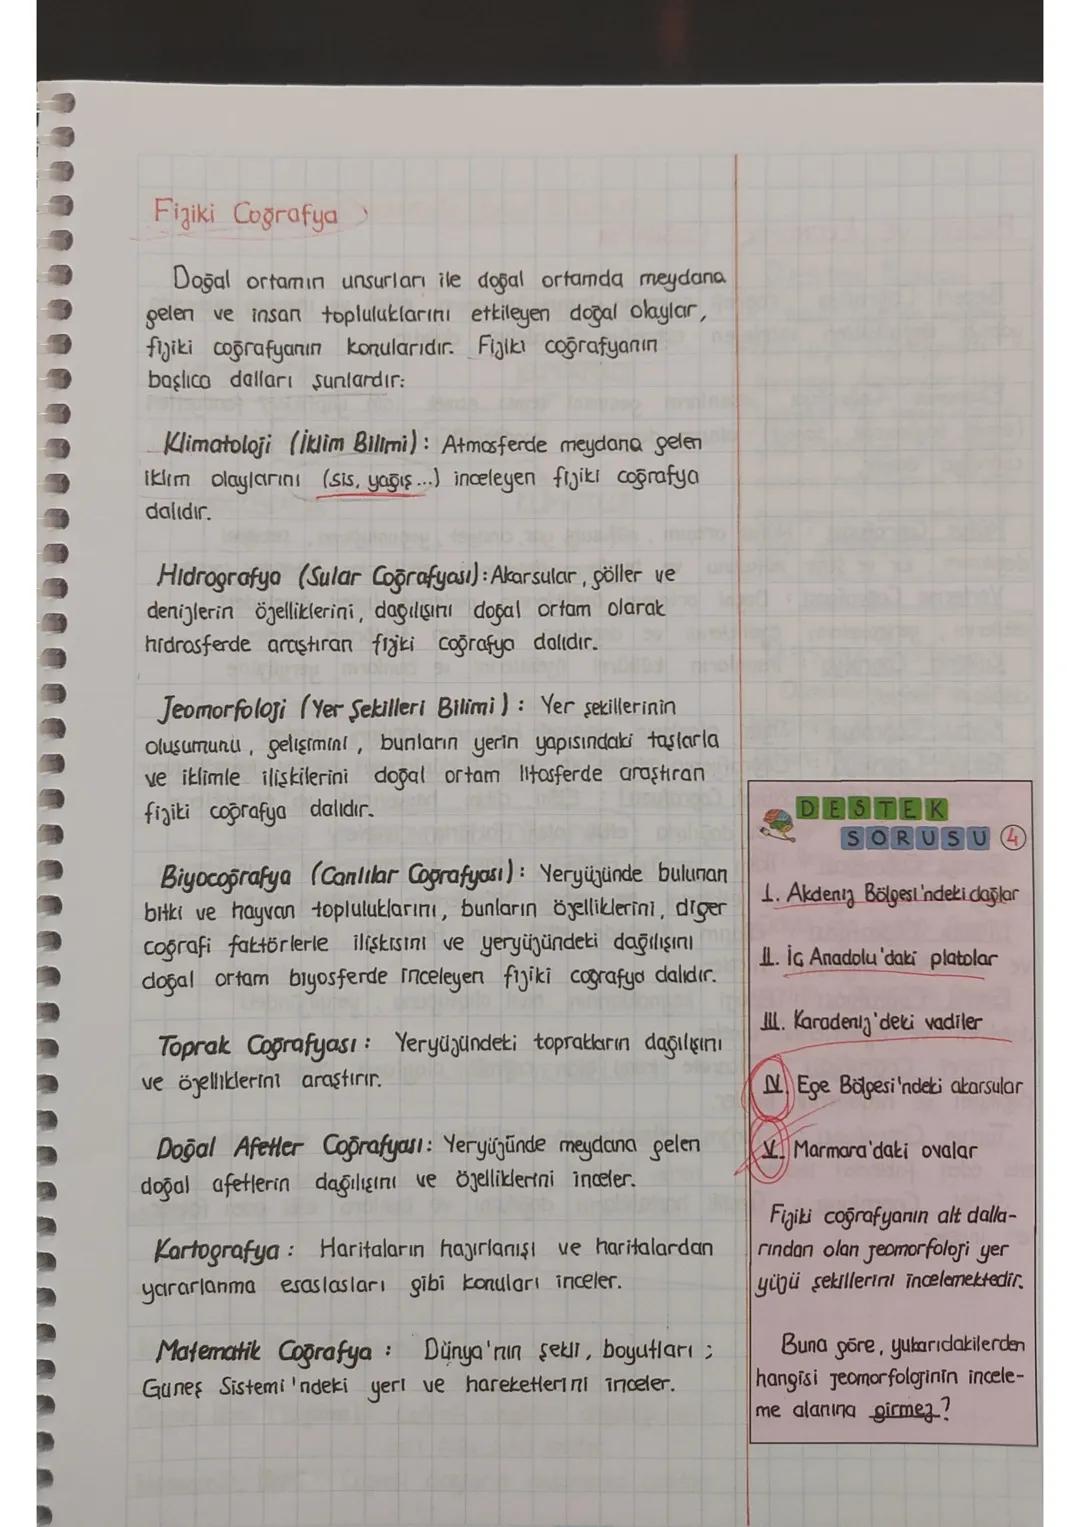 Fiziki Coğrafya
Doğal ortamın unsurları ile doğal ortamda meydana
gelen ve insan topluluklarını etkileyen doğal olaylar,
fiziki coğrafyanın konularıdır. Fiziki coğrafyanın
başlıca dalları şunlardır:
Klimatoloji (İklim Bilimi): Atmosferde meydana gelen
iklim olaylarını (sis, yağış...) inceleyen fiziki coğrafya
dalıdır.
Hidrografya (Sular Coğrafyası): Akarsular, göller ve
denizlerin özelliklerini, dağılışını doğal ortam olarak
hidrosferde araştıran fiziki coğrafya dalıdır.
Jeomorfoloji (Yer Şekilleri Bilimi): Yer şekillerinin
oluşumunu, gelişimini, bunların yerin yapısındaki taşlarla
ve iklimle ilişkilerini doğal ortam litosferde araştıran
fiziki coğrafya dalıdır.
Biyocoğrafya (Canlılar Coğrafyası): Yeryüzünde bulunan
bitki ve hayvan topluluklarını, bunların özelliklerini, diğer
coğrafi faktörlerle ilişkisini ve yeryüzündeki dağılışını
doğal ortam biyosferde inceleyen fiziki coğrafya dalıdır.
Toprak Coğrafyası: Yeryüzündeki toprakların dağılışını
ve özelliklerini araştırır.
Doğal Afetler Coğrafyası: Yeryüzünde meydana gelen
doğal afetlerin dağılışını ve özelliklerini inceler.
Kartografya: Haritaların hazırlanışı ve haritalardan
yararlanma esaslasları gibi konuları inceler.
Matematik Coğrafya: Dünya'nın şekli, boyutları;
Güneş Sistemi'ndeki yeri ve hareketlerini inceler.
DESTEK
SORUSU 4
I. Akdeniz Bölgesi'ndeki dağlar
II. İç Anadolu'daki platolar
III. Karadeniz'deki vadiler
IV. Ege Bölgesi'ndeki akarsular
V. Marmara'daki ovalar
Fiziki coğrafyanın alt dalla-
rından olan jeomorfoloji yer
yüzü şekillerini incelemektedir.
Buna göre, yukarıdakilerden
hangisi jeomorfolojinin incele-
me alanına girmez?